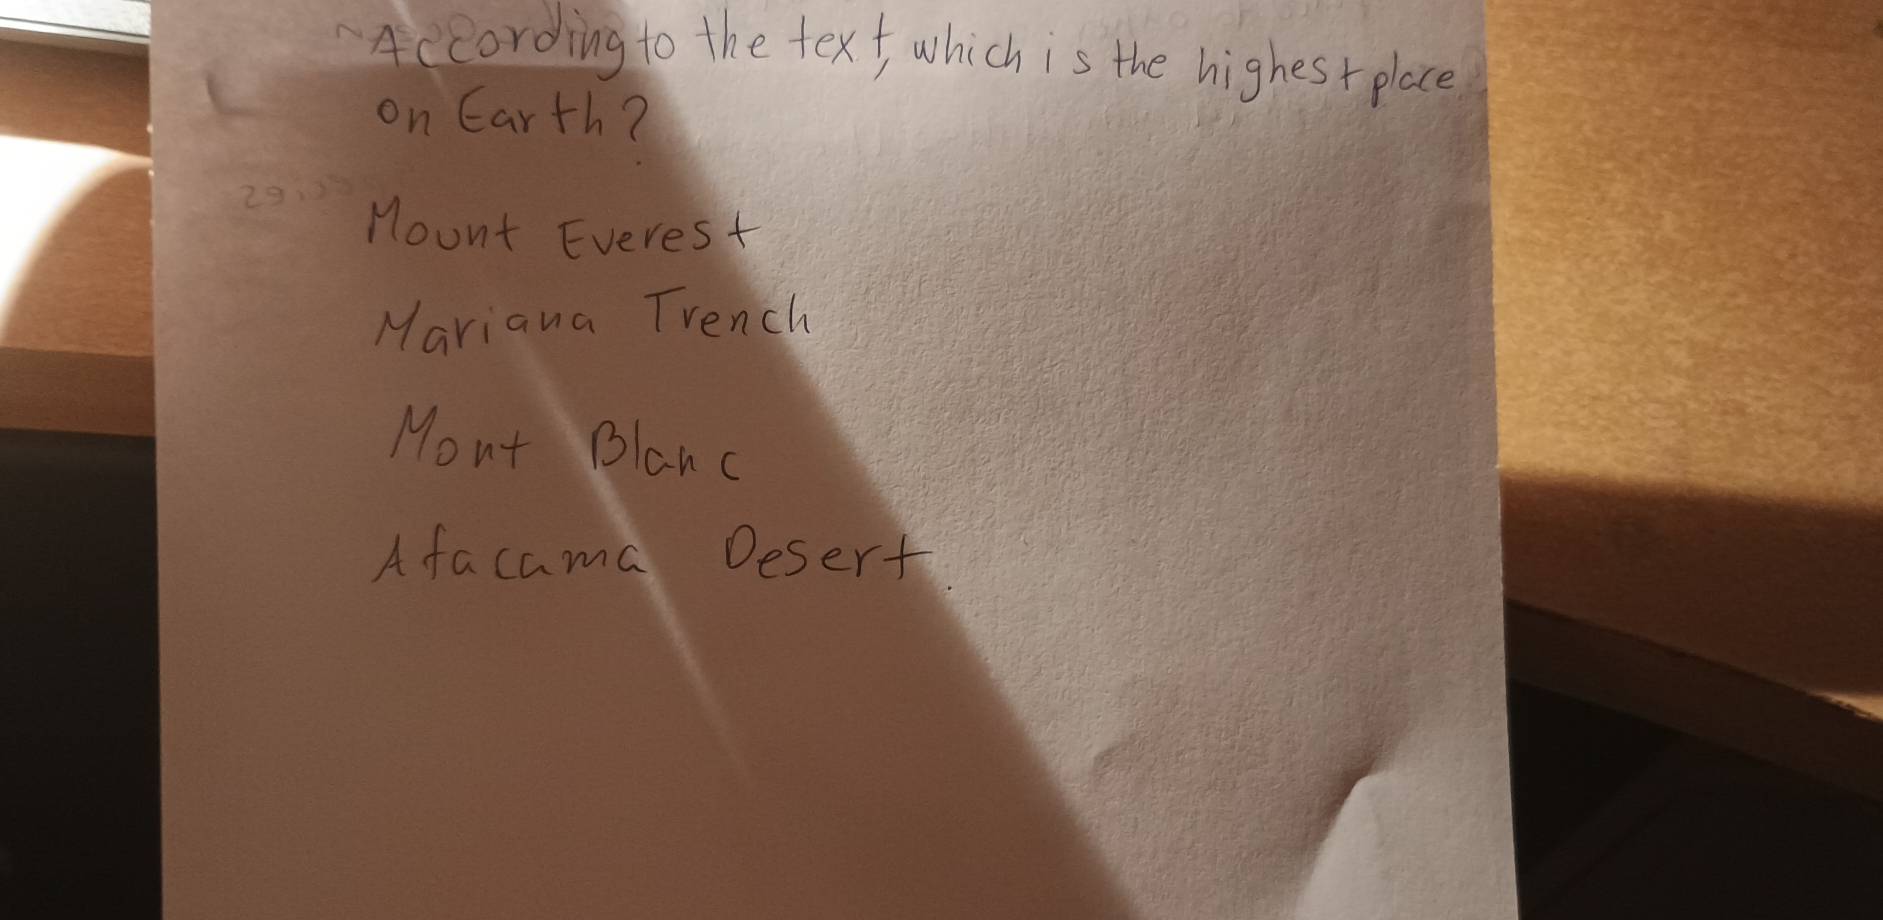 ~According to the text, which is the highest place
on Earth?
Mount Everest
Mariana Trench
Mont Blanc
Atacama Desert.